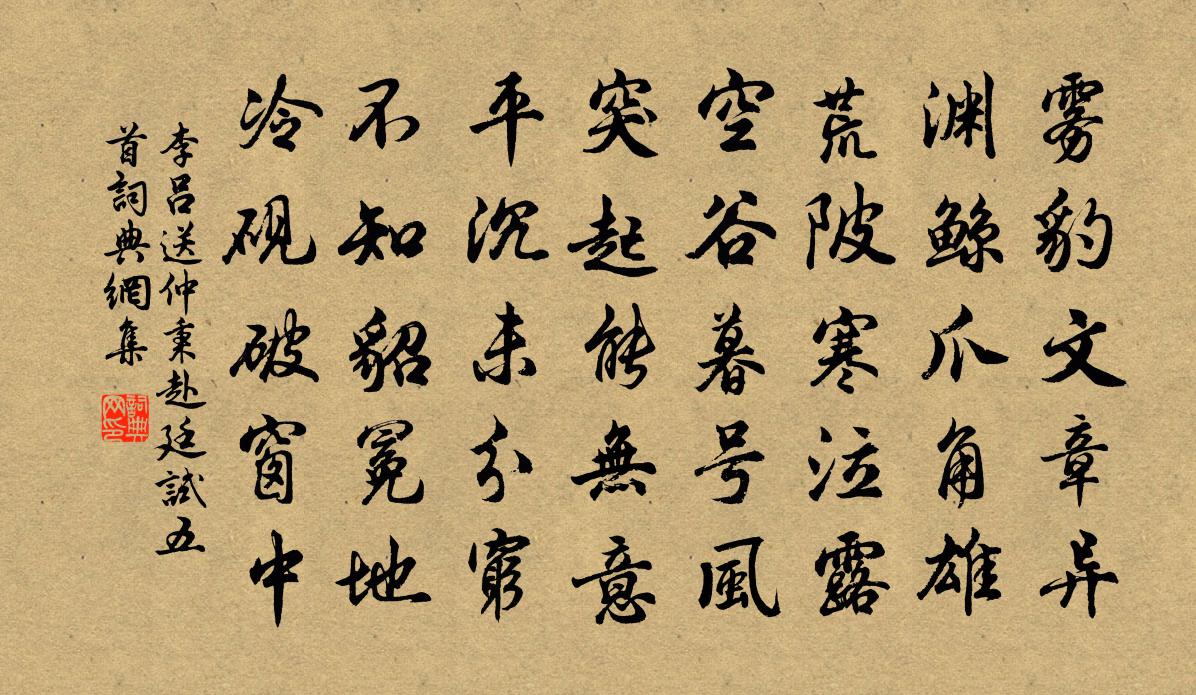 雾豹文章异
渊鲸爪角雄
荒陂寒泣露
空谷暮号風
突起能無意
平沉未分窮
不知貂冕地
冷砚破窗中
李吕送仲秉赴廷試五
首詞典網集
詞典网印